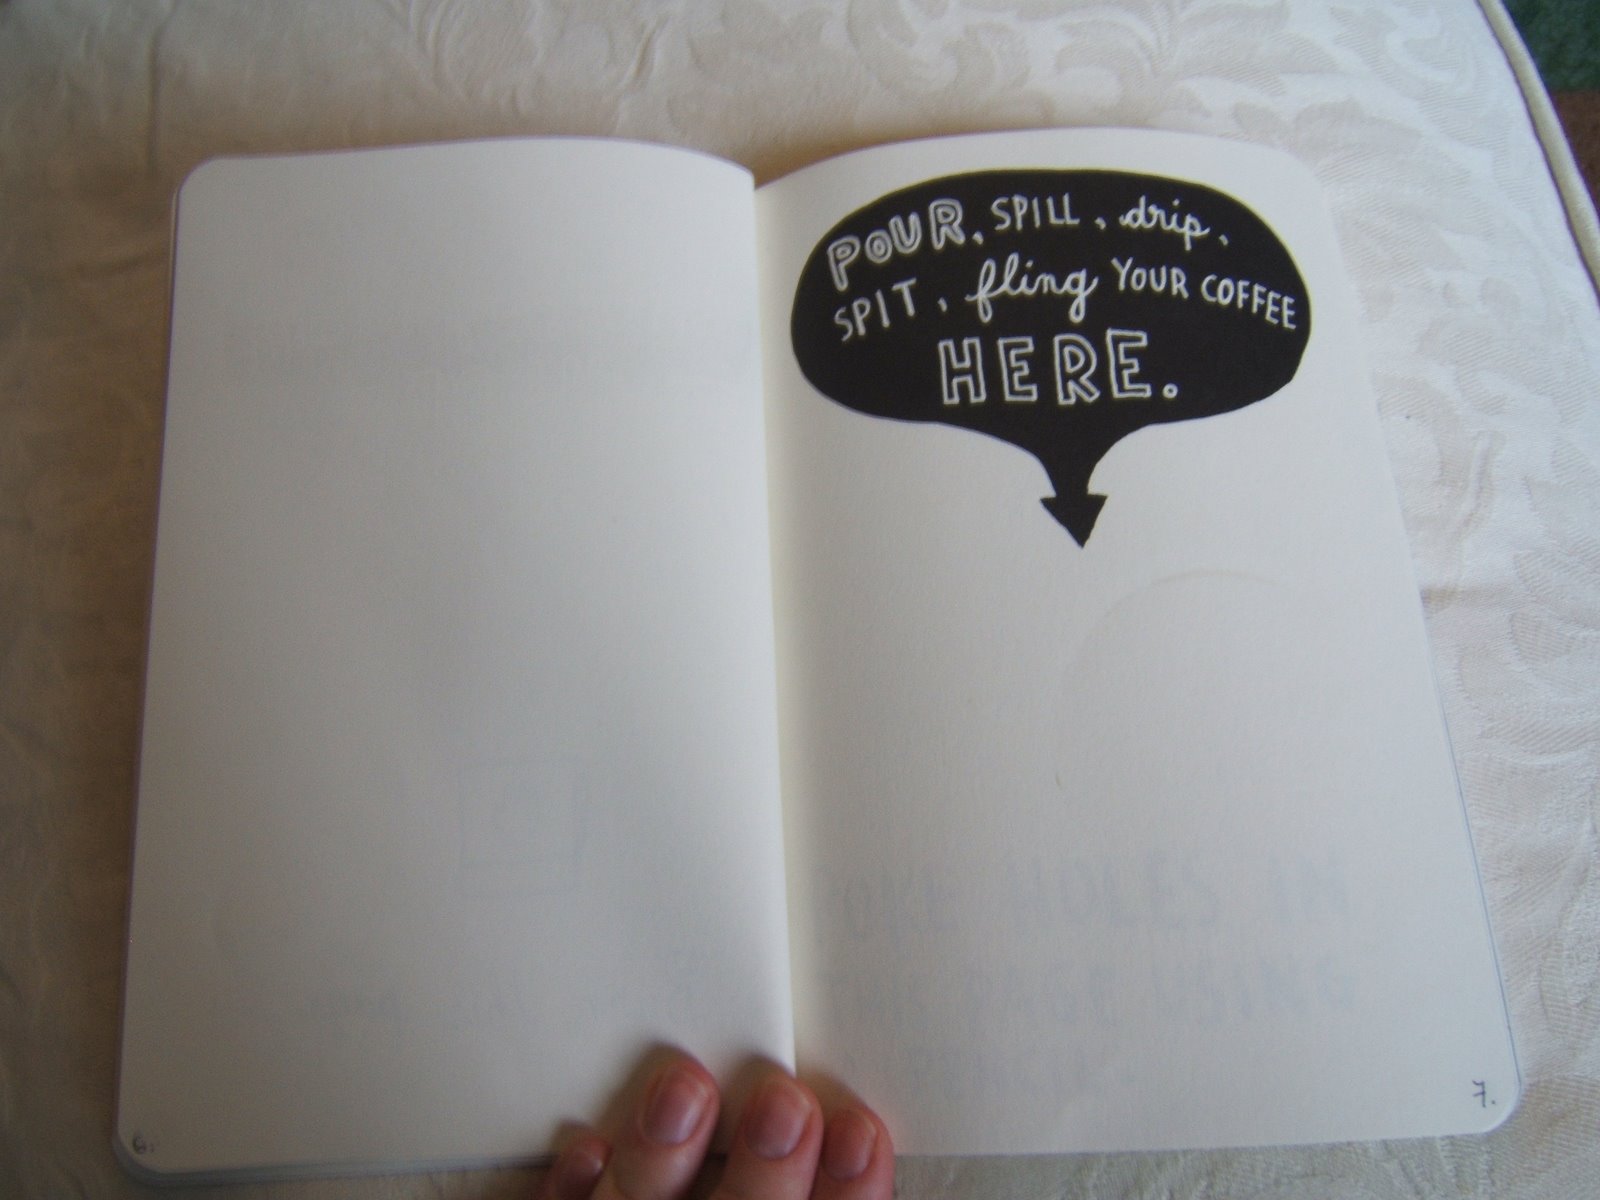 POUR, SPILL, drip,
SPIT, fling YOUR COFFEE
HERE.
6.
7.